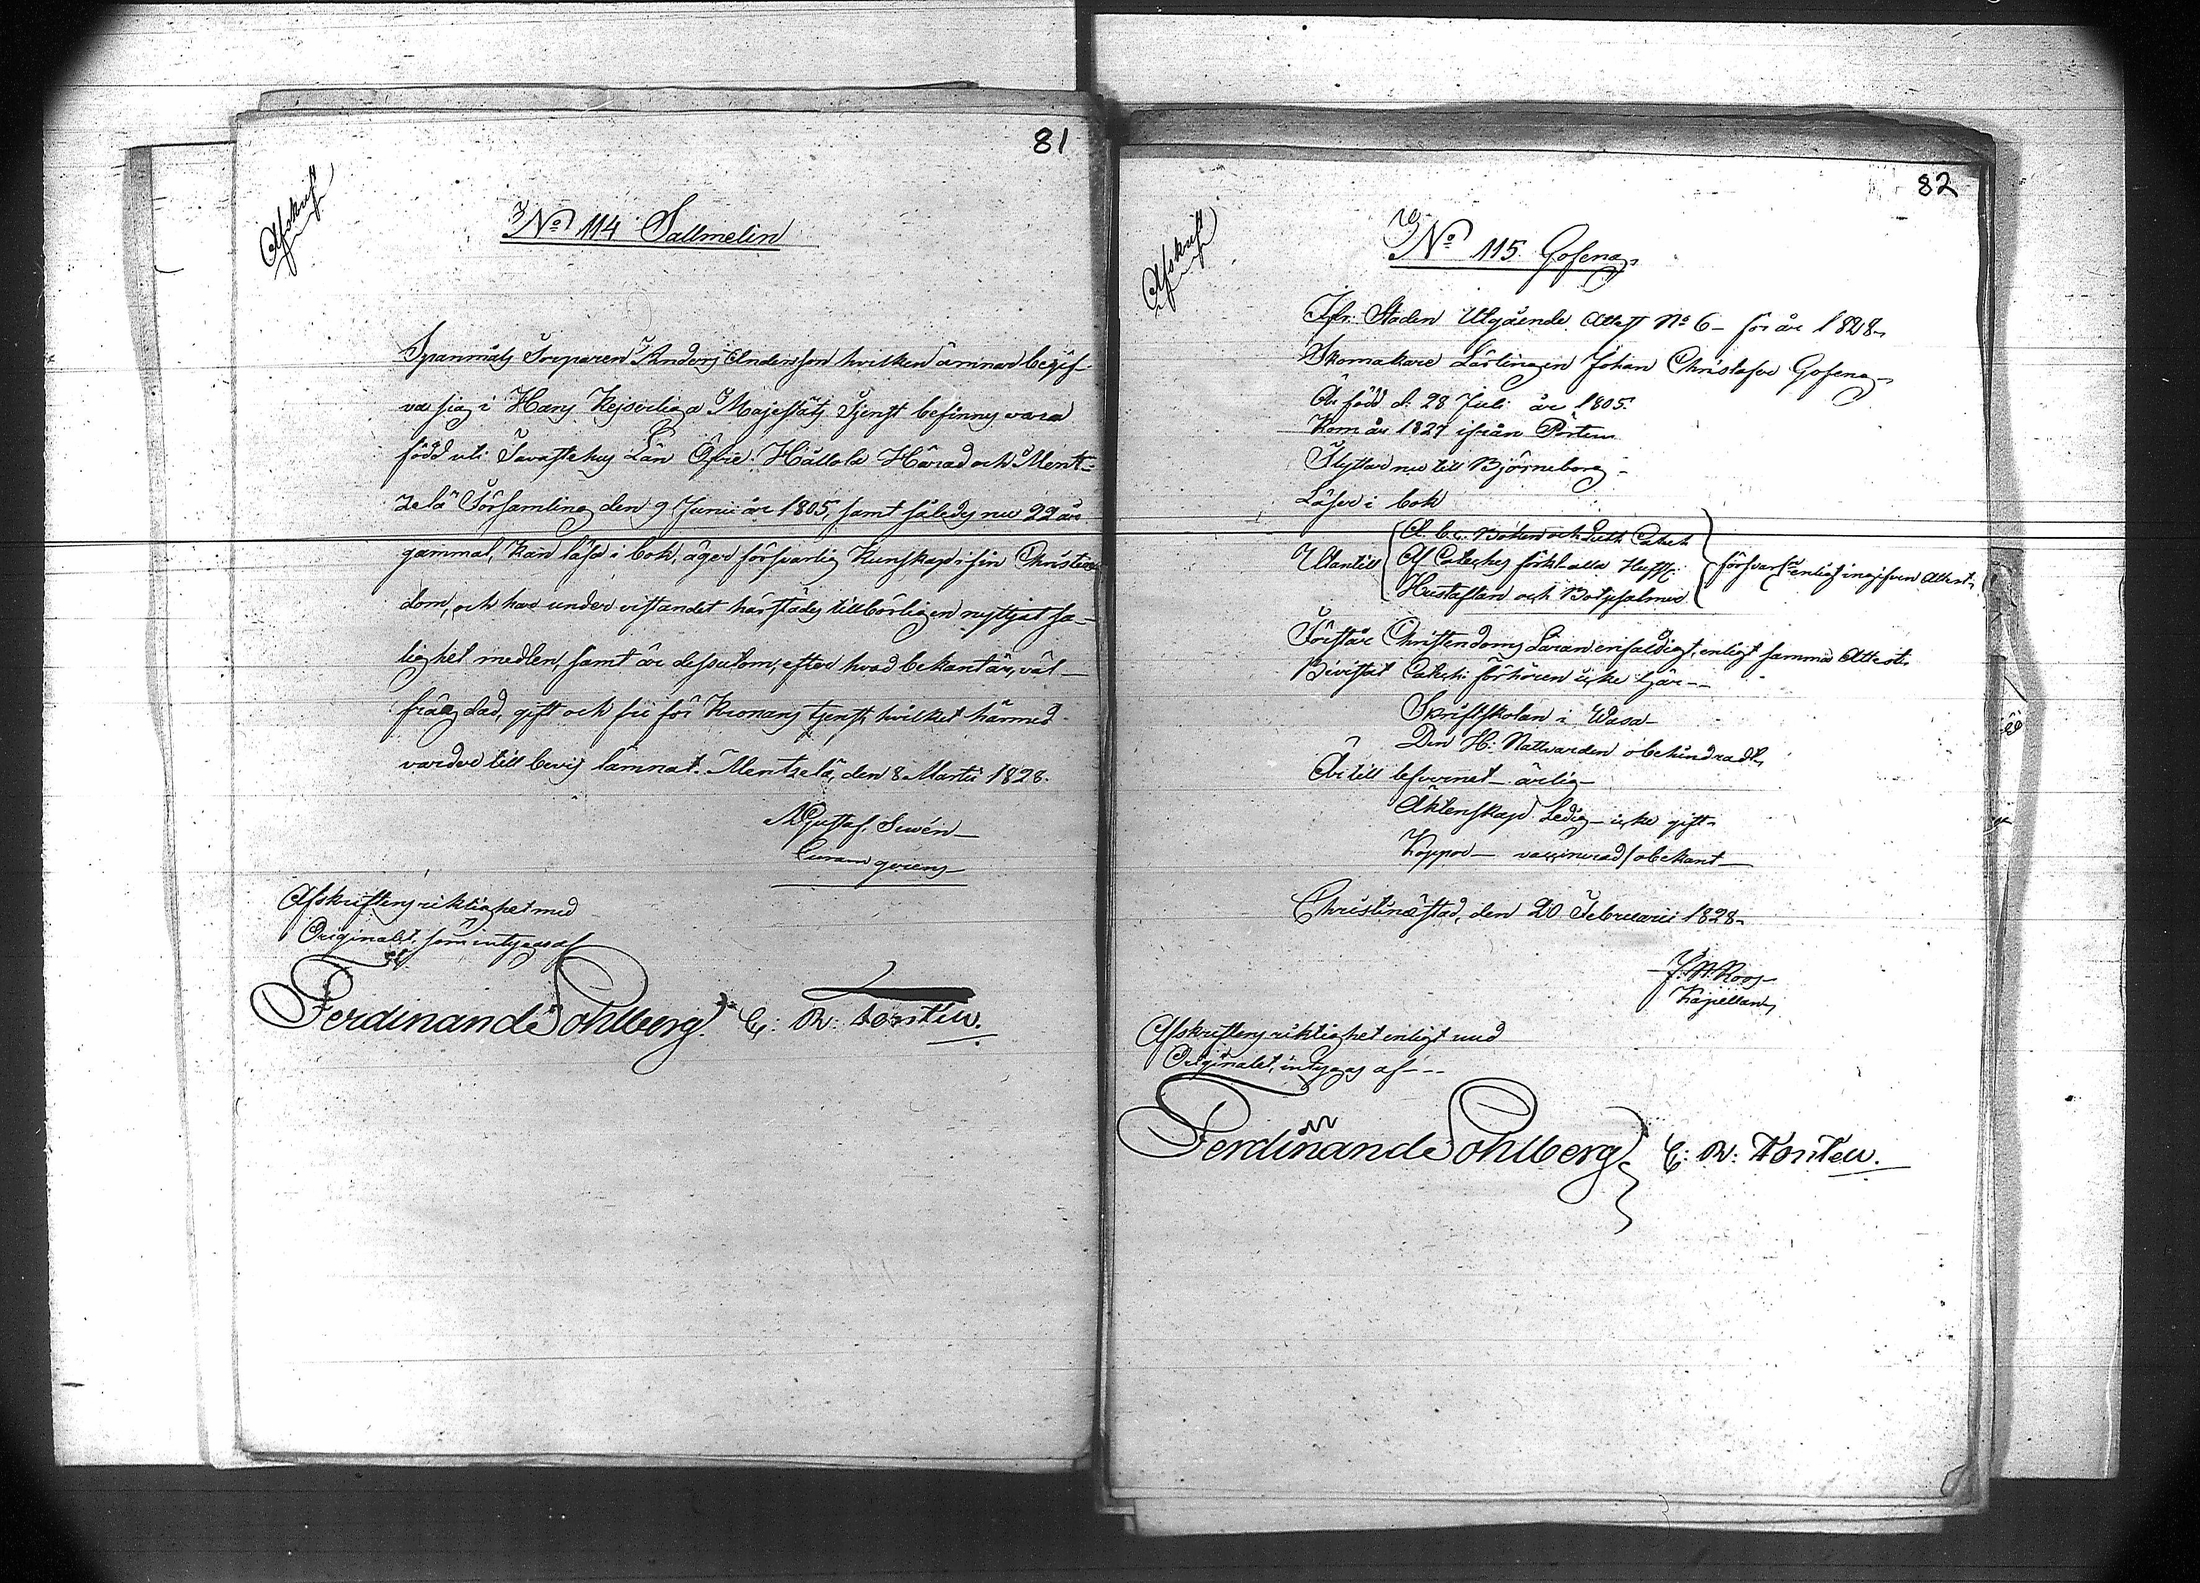 81
Afskrift
No 114 Sallmelin
Spanmåls Torparen Anders Andersson hvilken ämnar begif-
va sig i Hans Kejserliga Majestäts Tjenst befinnes vara
född uti Tavastehus Län Öfre Hållola Härad och Ment-
zelä Församling den 9 Junii år 1805, samt således nu 22 år
gammal, kan läsa i bok, äger försvarlig kunskap i sin Christen-
dom, och har under vistandet härstädes tillbörligen nyttjat sa-
lighet medlen, samt är dessutom, efter hvad bekant är, väl
frägdad, gift och fri för Kronans tjenst, hvilket härmed
varder till bevis lämnat. Mentzelä, den 8 Martii 1828.
Gustaf Swén
Curam gerens
Afskriftens riktighet med
Originalet, som intygas af
Ferdinand Sohlberg. C: R: Forstell.
82
Afskrift
No 115 Gosena
Ifr. Staden Utgående Attest No 6 för år 1828
Skomakare Lärlingen Johan Christafer Gosena
Är född d. 28 Juli år 1805.
Kom år 1827 ifrån Pörtem
Flyttar nu till Björneborg
Läser i bok
Utantill A. b. c. Boken och Luth. Catech
Af Cateches förklar
Hustaflan och Botpsalmer
försvarl enligt ingifven Attest
Förstår Christendoms Läran enfaldigt, enligt samma Attest.
Bivistat Catech: förhören icke här
Skriftskolan i Wasa
Den H: Nattvarden obehindradt
Är till lefvernet ärlig
Äktenskap Ledig icke gift
Koppor vaccinerad obekant
Christinæstad, den 20 Februarii 1828
Roos
Kapellan
Afskriftens riktighet enligt med
Originalet, intygas af
Ferdinand Sohlberg C: R: Forstell.